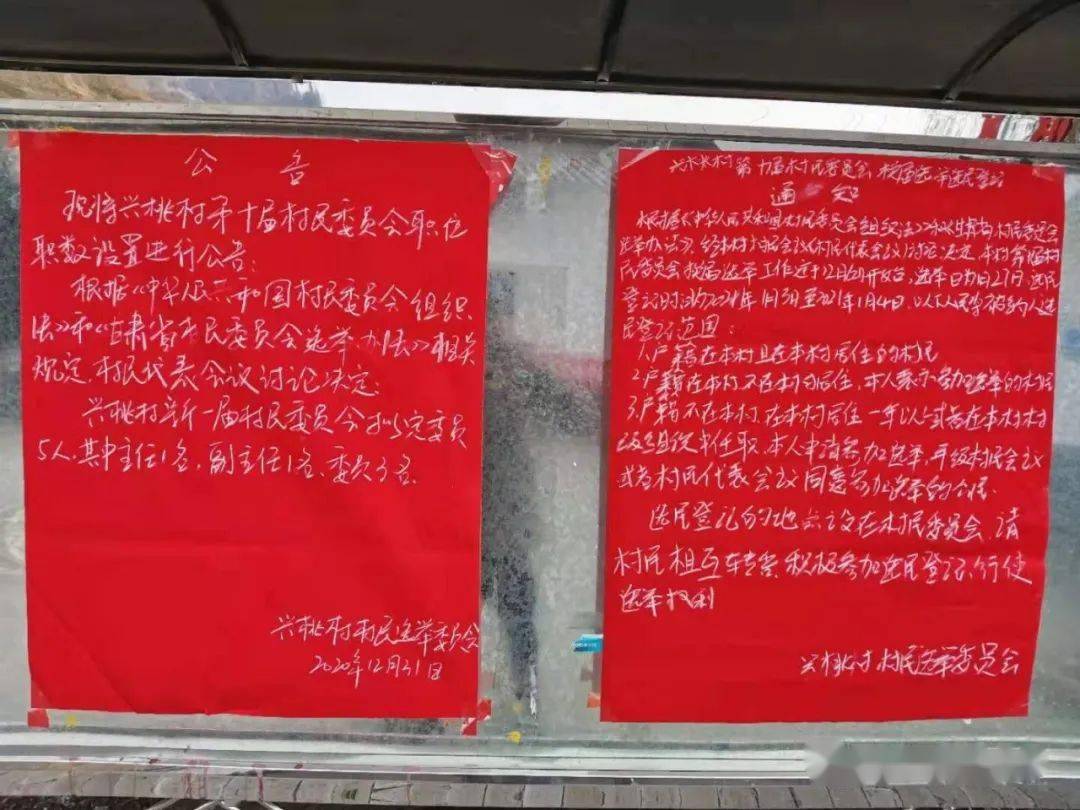 公告
现将兴桃村第十届村民委员会职位
职数设置进行公告:
根据《中华人民共和国村民委员会组织
法》和《甘肃省村民委员会选举办法》相关
规定,村民代表会议讨论决定:
兴桃村新一届村民委员会拟定委员
5人,其中主任1名,副主任1名,委员3名.
兴桃村村民选举委员会
2020年12月31日
兴桃村第十届村民委员会换届选举选民登记
通知
根据《中华人民共和国村民委员会组织法》和《甘肃省村民委员会
选举办法》,经村民会议(村民代表会议)讨论决定,本村第十届村
民委员会换届选举工作
选民
登记时间为
民登记范围:
1.户籍在本村且在本村居住的村民
2.户籍在本村,不在本村居住,本人表示参加选举的村民
3.户籍不在本村,在本村居住一年以上或者在本村村
级组织中任职,本人申请参加选举,并经村民会议
或者村民代表会议同意参加选举的公民.
选民登记的地点设在村民委员会,请
村民相互转告,积极参加选民登记,行使
选举权利
兴桃村村民选举委员会